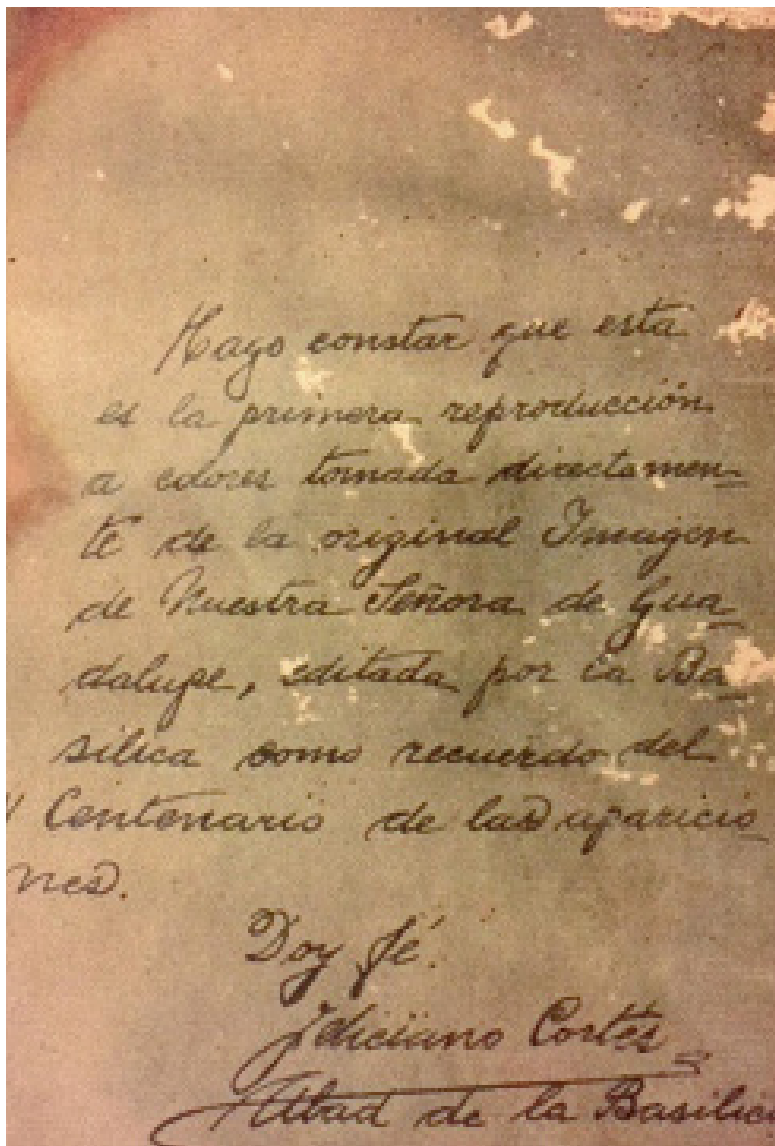 Hago constar que esta
es la primera reproducción
a colores tomada directamen-
te de la original Imagen
de Nuestra Señora de Gua-
dalupe, editada por la Ba-
silica como recuerdo del
Centenario de las aparicio-
nes.
Doy fé.
Feliciano Cortés
Abad de la Basilica